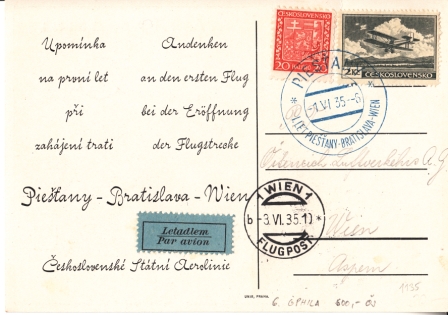 Upomínka
na první let
při
zahájení trati
Andenken
an den ersten Flug
bei der Eröffnung
der Flugstrecke
Piešťany-Bratislava-Wien
Letadlem
Par avion
Československé Státní Aerolinie
ČESKOSLOVENSKO
20
ČESKOSLOVENSKO
PIEŠŤANY
-1.VI 35-6
I. LET PIEŠŤANY-BRATISLAVA-WIEN
1 WIEN 1
b -3.VI.35.1) *
FLUGPOST
A.G.
Wien
Aspern
1935
6. ÖPHILA 600,- ÖS